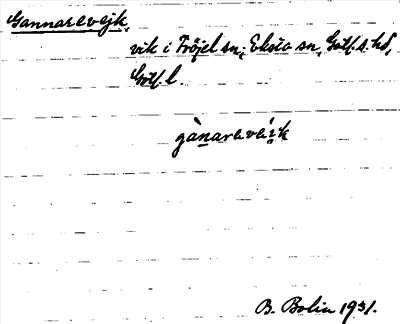 Gannarevejk,
vik i Fröjel sn, Eksta sn, Gotl. s. hd,
Gotl. l.
gànarevèi̯k
B. Bolin 1931.